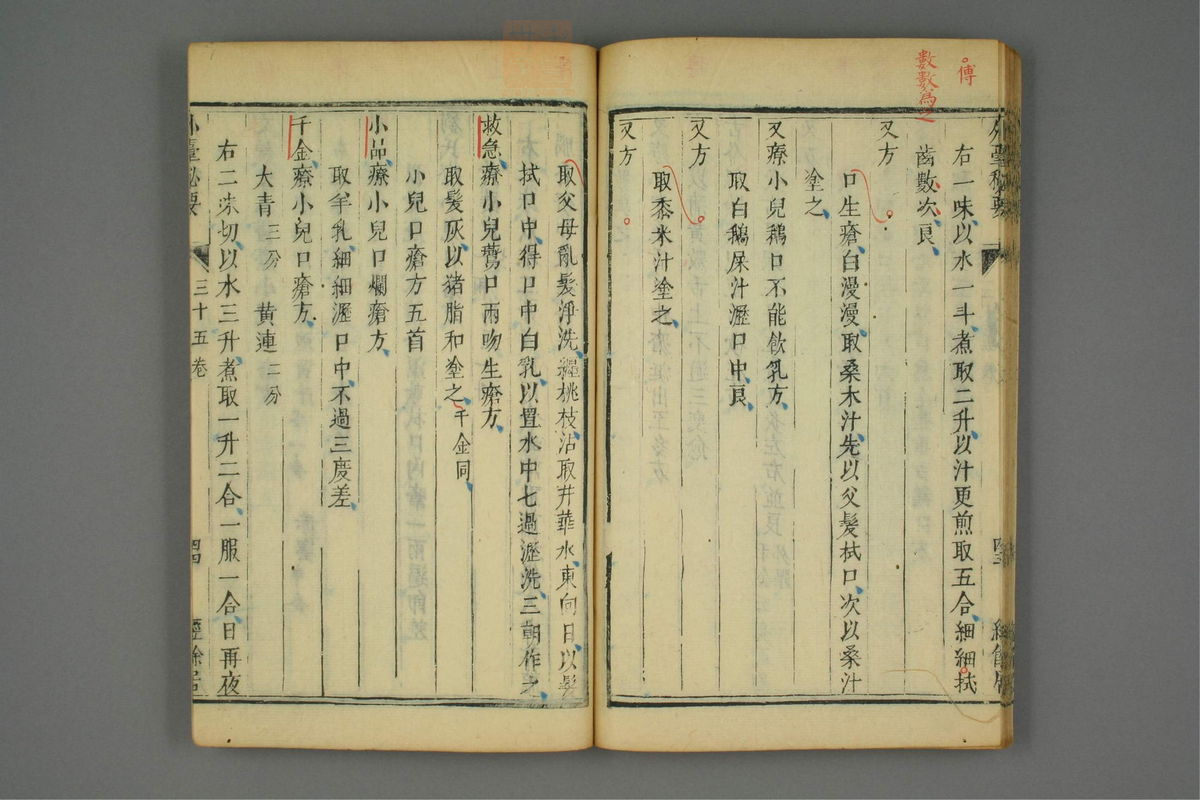 傅
數數為之
外臺秘要
右一味以水一斗煮取二升以汁更煎取五合細細拭
齒數次良
又方
口生瘡白漫漫取桑木汁先以父髮拭口次以桑汁
塗之
又療小兒鵝口不能飲乳方
取白鵝屎汁瀝口中良
又方
取黍米汁塗之
又方
取父母亂髮淨洗纏桃枝沾取井華水東向日以髮
拭口中得口中白乳以置水中七過瀝洗三朝作之
救急療小兒鷰口兩吻生瘡方
取髮灰以猪脂和塗之千金同
小兒口瘡方五首
小品療小兒口爛瘡方
取羊乳細細瀝口中不過三度差
千金療小兒口瘡方
大青三分 黄連二分
右二味切以水三升煮取一升二合一服一合日再夜
外臺秘要 三十五卷 四四 經餘居